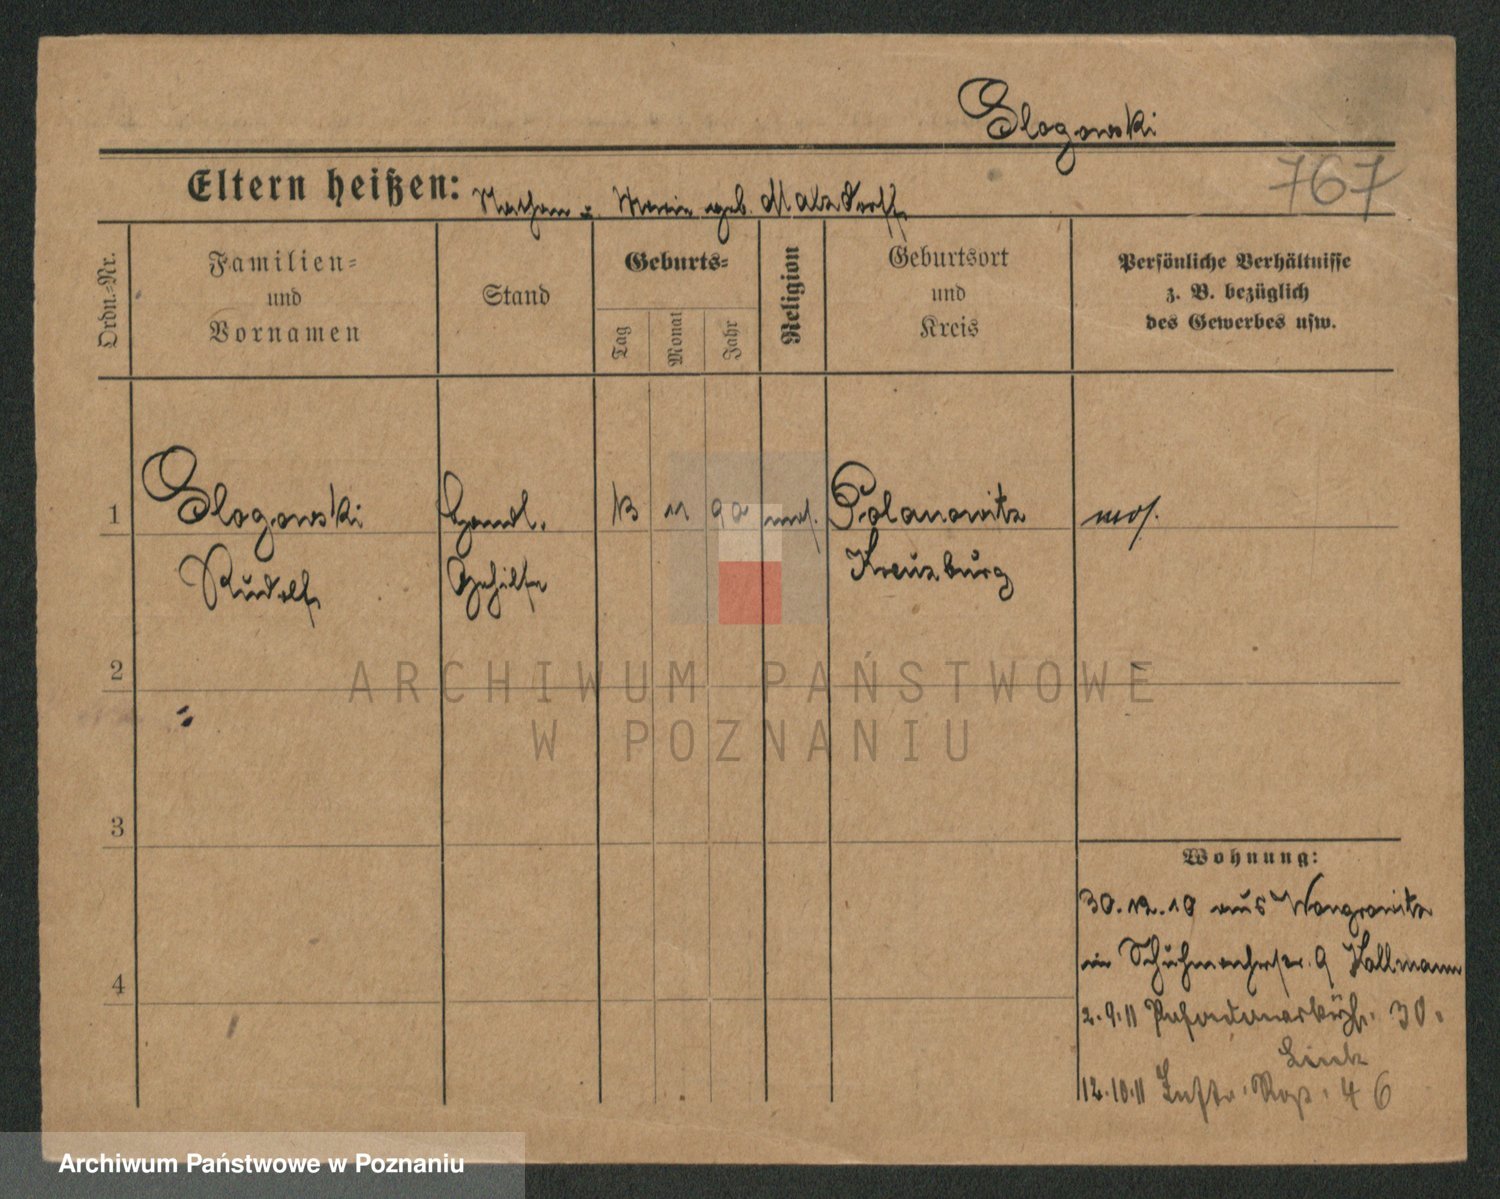 Glogowski
767
Eltern heißen: Nathan u. Marie geb. Malzdorff
Ordn.-Nr.
Familien-
und
Vornamen
Stand
Geburts-
Tag
Monat
Jahr
Religion
Geburtsort
und
Kreis
Persönliche Verhältnisse
z. B. bezüglich
des Gewerbes usw.
1 Glogowski Handl. 13 11 90 mos. Polanowitz mos.
Rudolf Gehilfe Kreuzburg
2
3
4
Wohnung:
30.12.10 aus Wongrowitz
in Schuhmacherstr. 9 Hallmann
2.9.11 30.
12.10.11 46
ARCHIWUM PAŃSTWOWE
W POZNANIU
Archiwum Państwowe w Poznaniu